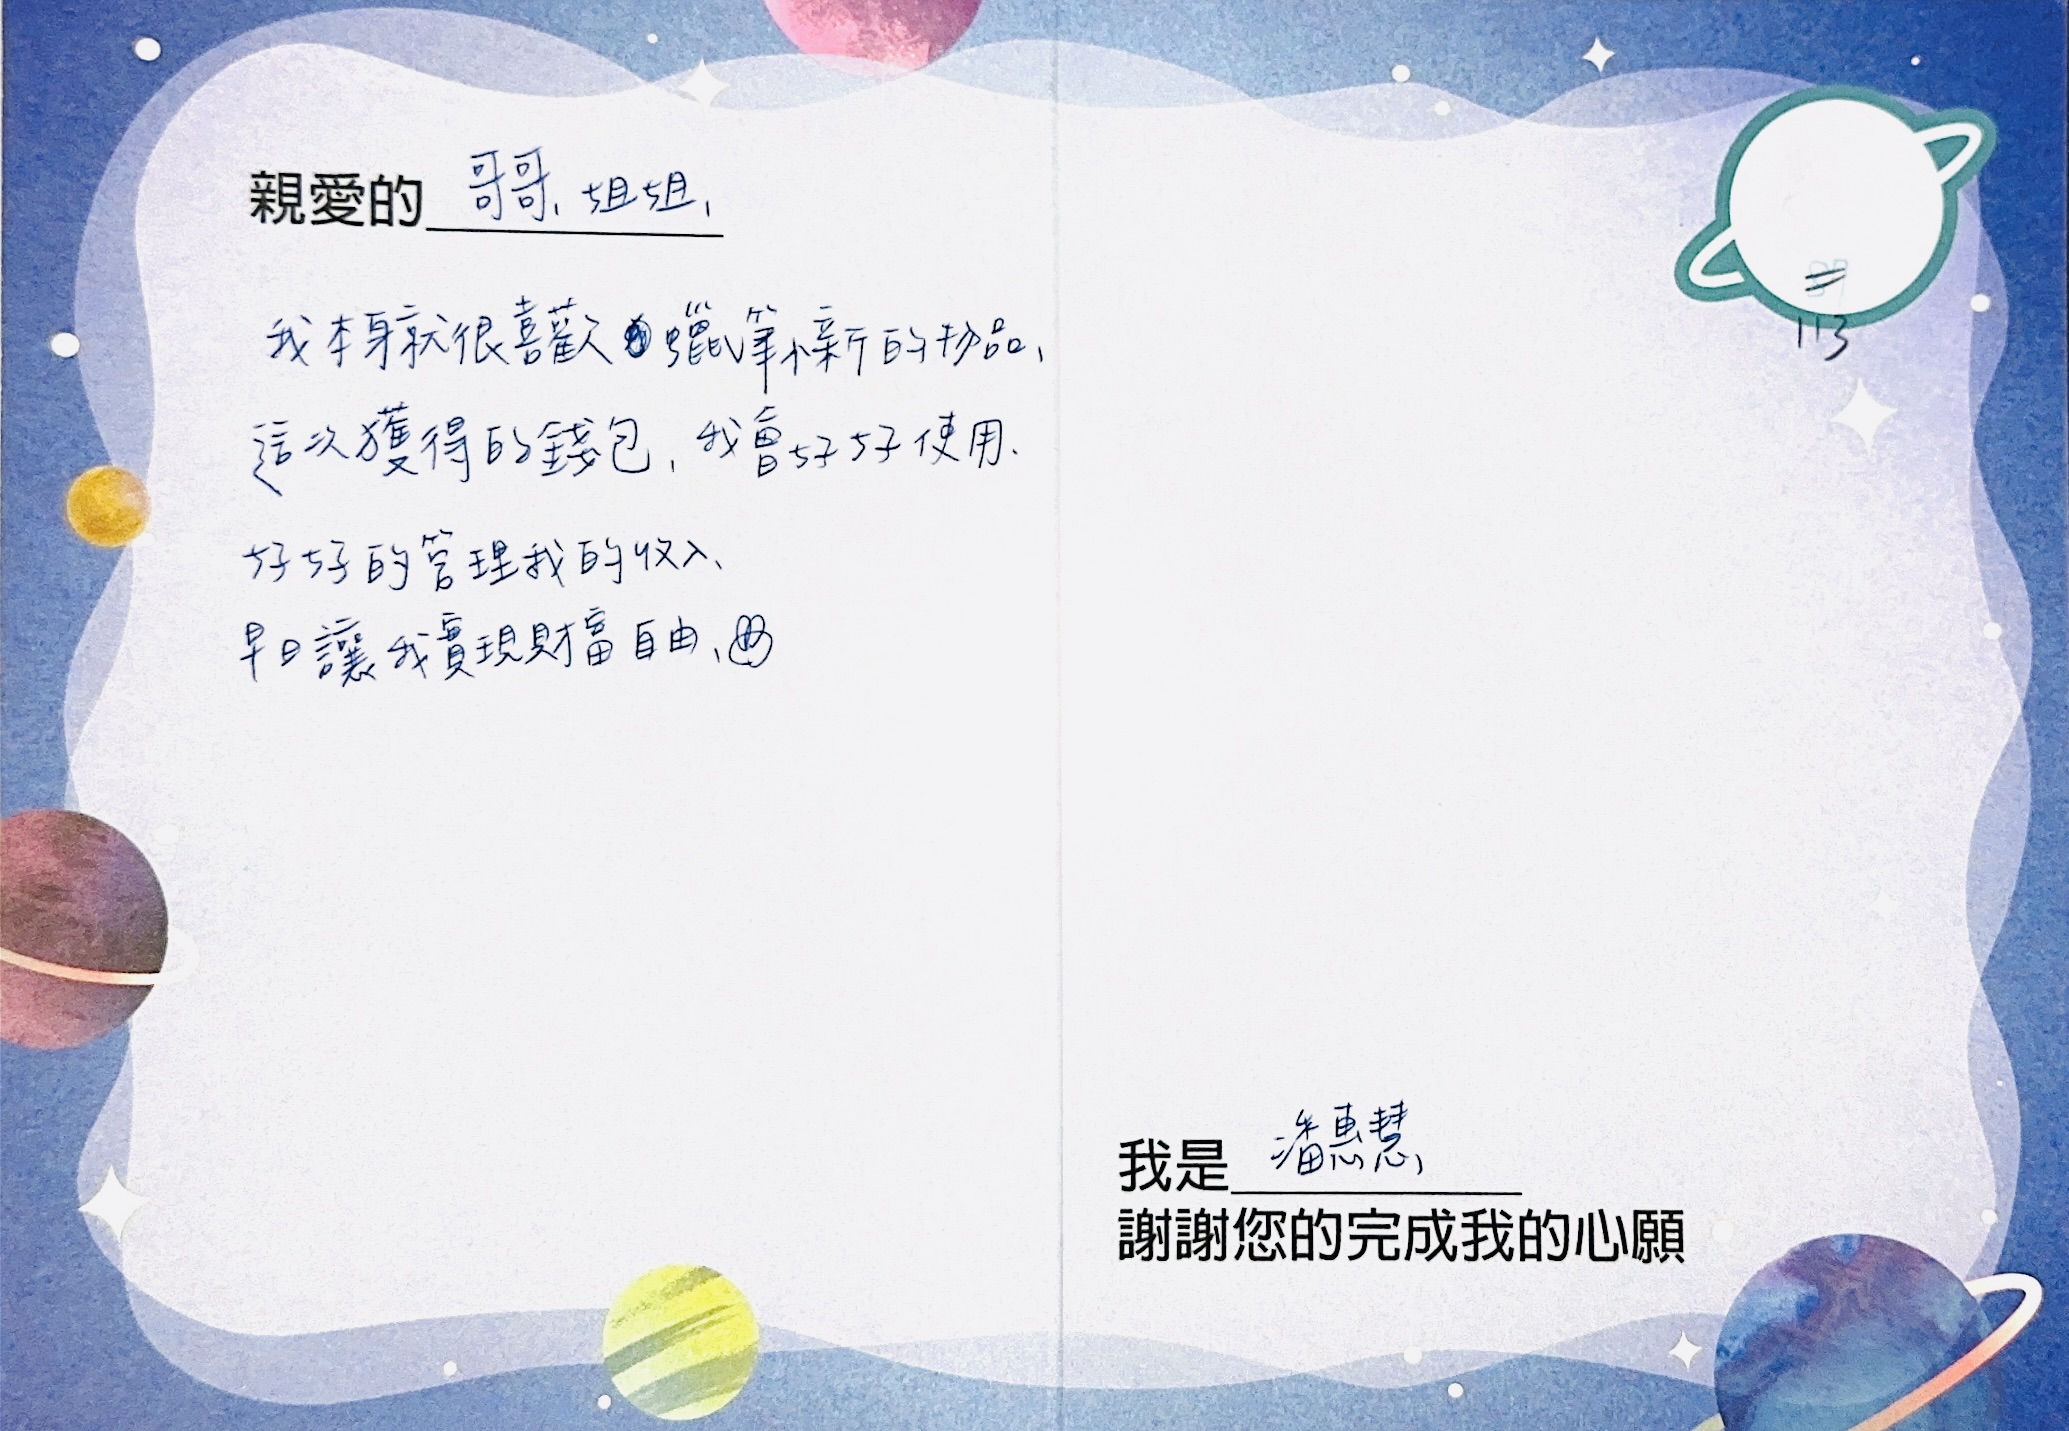 親愛的 哥哥、姐姐、
我本身就很喜歡蠟筆小新的物品、
這次獲得的錢包、我會好好使用.
好好的管理我的收入、
早日讓我實現財富自由、
113
我是 潘惠慧、
謝謝您的完成我的心願